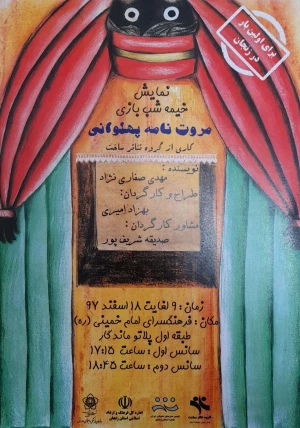 برای اولین بار
در زنجان
نمایش
خیمه شب بازی
مروت نامه پهلوانی
کاری از گروه تئاتر ساخت
نویسنده:
مهدی صفاری نژاد
طراح و کارگردان:
بهزاد امیری
مشاور کارگردان:
صدیقه شریف پور
زمان: ۹ لغایت ۱۸ اسفند ۹۷
مکان: فرهنگسرای امام خمینی (ره)
طبقه اول پلاتو ماندگار
سانس اول: ساعت ۱۷:۱۵
سانس دوم: ساعت ۱۸:۴۵
اداره کل فرهنگ و ارشاد
اسلامی استان زنجان